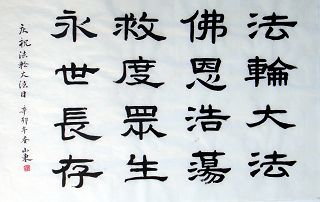 法輪大法
佛恩浩蕩
救度眾生
永世長存
庆祝法轮大法日 辛卯年春 山東